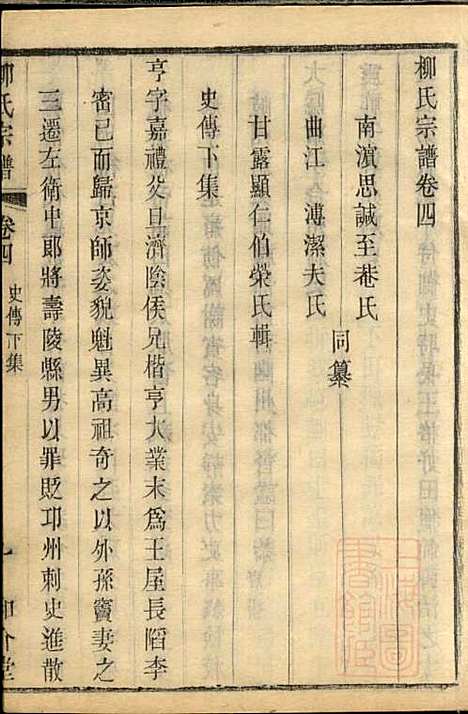 柳氏宗譜卷四
南濵思誠至菴氏
曲江溥潔夫氏
同纂
甘露顯仁伯榮氏輯
史傳下集
亨字嘉禮父旦濟陰侯兄楷亨大業末爲王屋長陷李
密已而歸京師姿貌魁異高祖奇之以外孫竇妻之
三遷左衛中郎將壽陵縣男以罪貶邛州刺史進散
柳氏宗譜
卷四
史傳下集